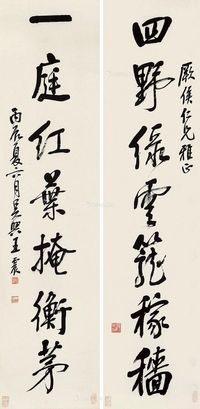 厥侯仁兄雅正
四野绿云笼稼穑
一庭红叶掩衡茅
丙辰夏六月吴兴王震